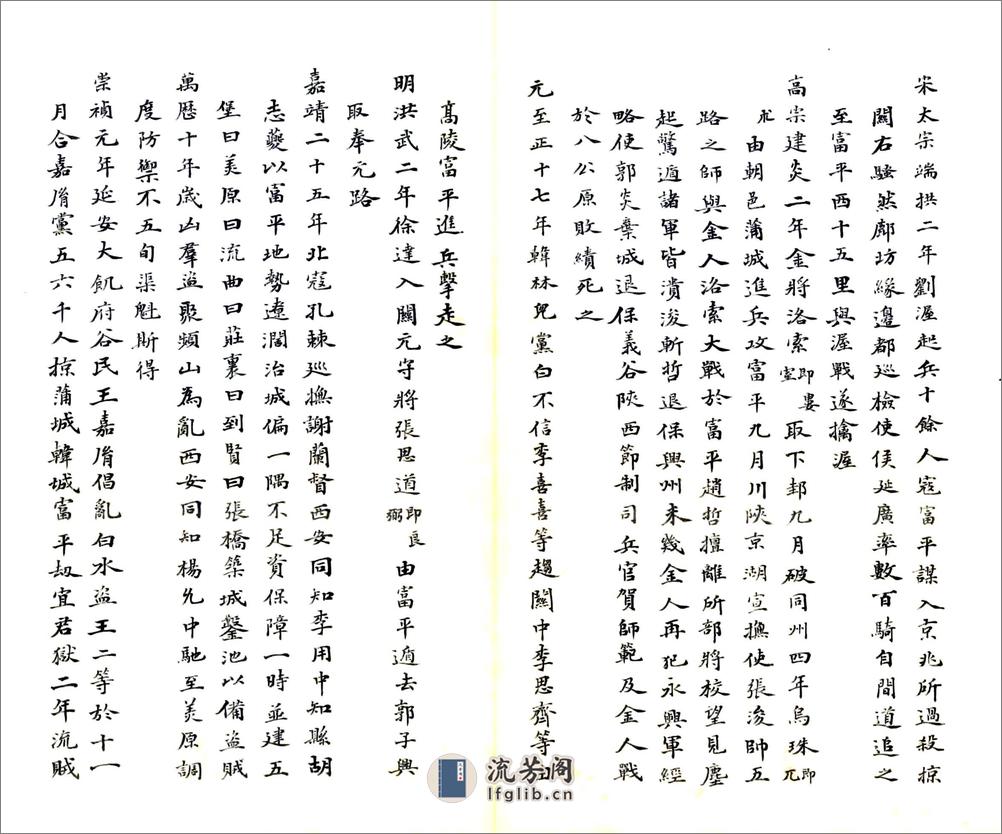 宋太宗端拱二年劉渥起兵十餘人寇富平謀入京兆所過殺掠
關右騷然鄜坊緣邊都巡檢使侯延廣率數百騎自間道追之
至富平西十五里與渥戰遂擒渥
高宗建炎二年金將洛索即婁室取下邽九月破同州四年烏珠即兀
朮由朝邑蒲城進兵攻富平九月川陝京湖宣撫使張浚帥五
路之師與金人洛索大戰於富平趙哲擅離所部將校望見塵
起驚遁諸軍皆潰浚斬哲退保興州未幾金人再犯永興軍經
略使郭炎棄城退保義谷陝西節制司兵官賀師範及金人戰
於八公原敗績死之
元至正十七年韓林兒黨白不信李喜喜等趨關中李思齊等由
高陵富平進兵擊走之
明洪武二年徐達入關元守將張思道即良弼由富平遁去郭子興
取奉元路
嘉靖二十五年北寇孔棘巡撫謝蘭督西安同知李用中知縣胡
志夔以富平地勢遼濶治城偏一隅不足資保障一時並建五
堡曰美原曰流曲曰莊裏曰到賢曰張橋築城鑿池以備盜賊
萬歷十年歲凶羣盜聚頻山為亂西安同知楊允中馳至美原調
度防禦不五旬渠魁斯得
崇禎元年延安大飢府谷民王嘉胤倡亂白水盜王二等於十一
月合嘉胤黨五六千人掠蒲城韓城富平劫宜君獄二年流賊
流芳阁
lfglib.cn